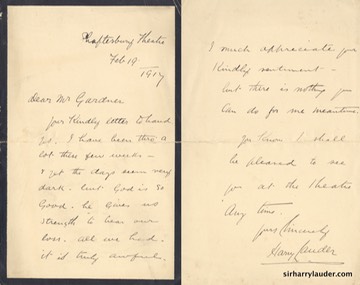 Shaftesbury Theatre
Feb 19
1917
Dear Mr Gardner
Your kindly letter to hand
I have been thro a
lot these few weeks -
& yet the days seem very
dark - but God is so
Good. he gives us
strength to bear our
loss. all we had.
it is truly awful.
I much appreciate your
kindly sentiment -
but there is nothing you
can do for me meantime.
You know I shall
be pleased to see
you at the theatre
Any time.
Yours Sincerely
Harry Lauder
sirharrylauder.com